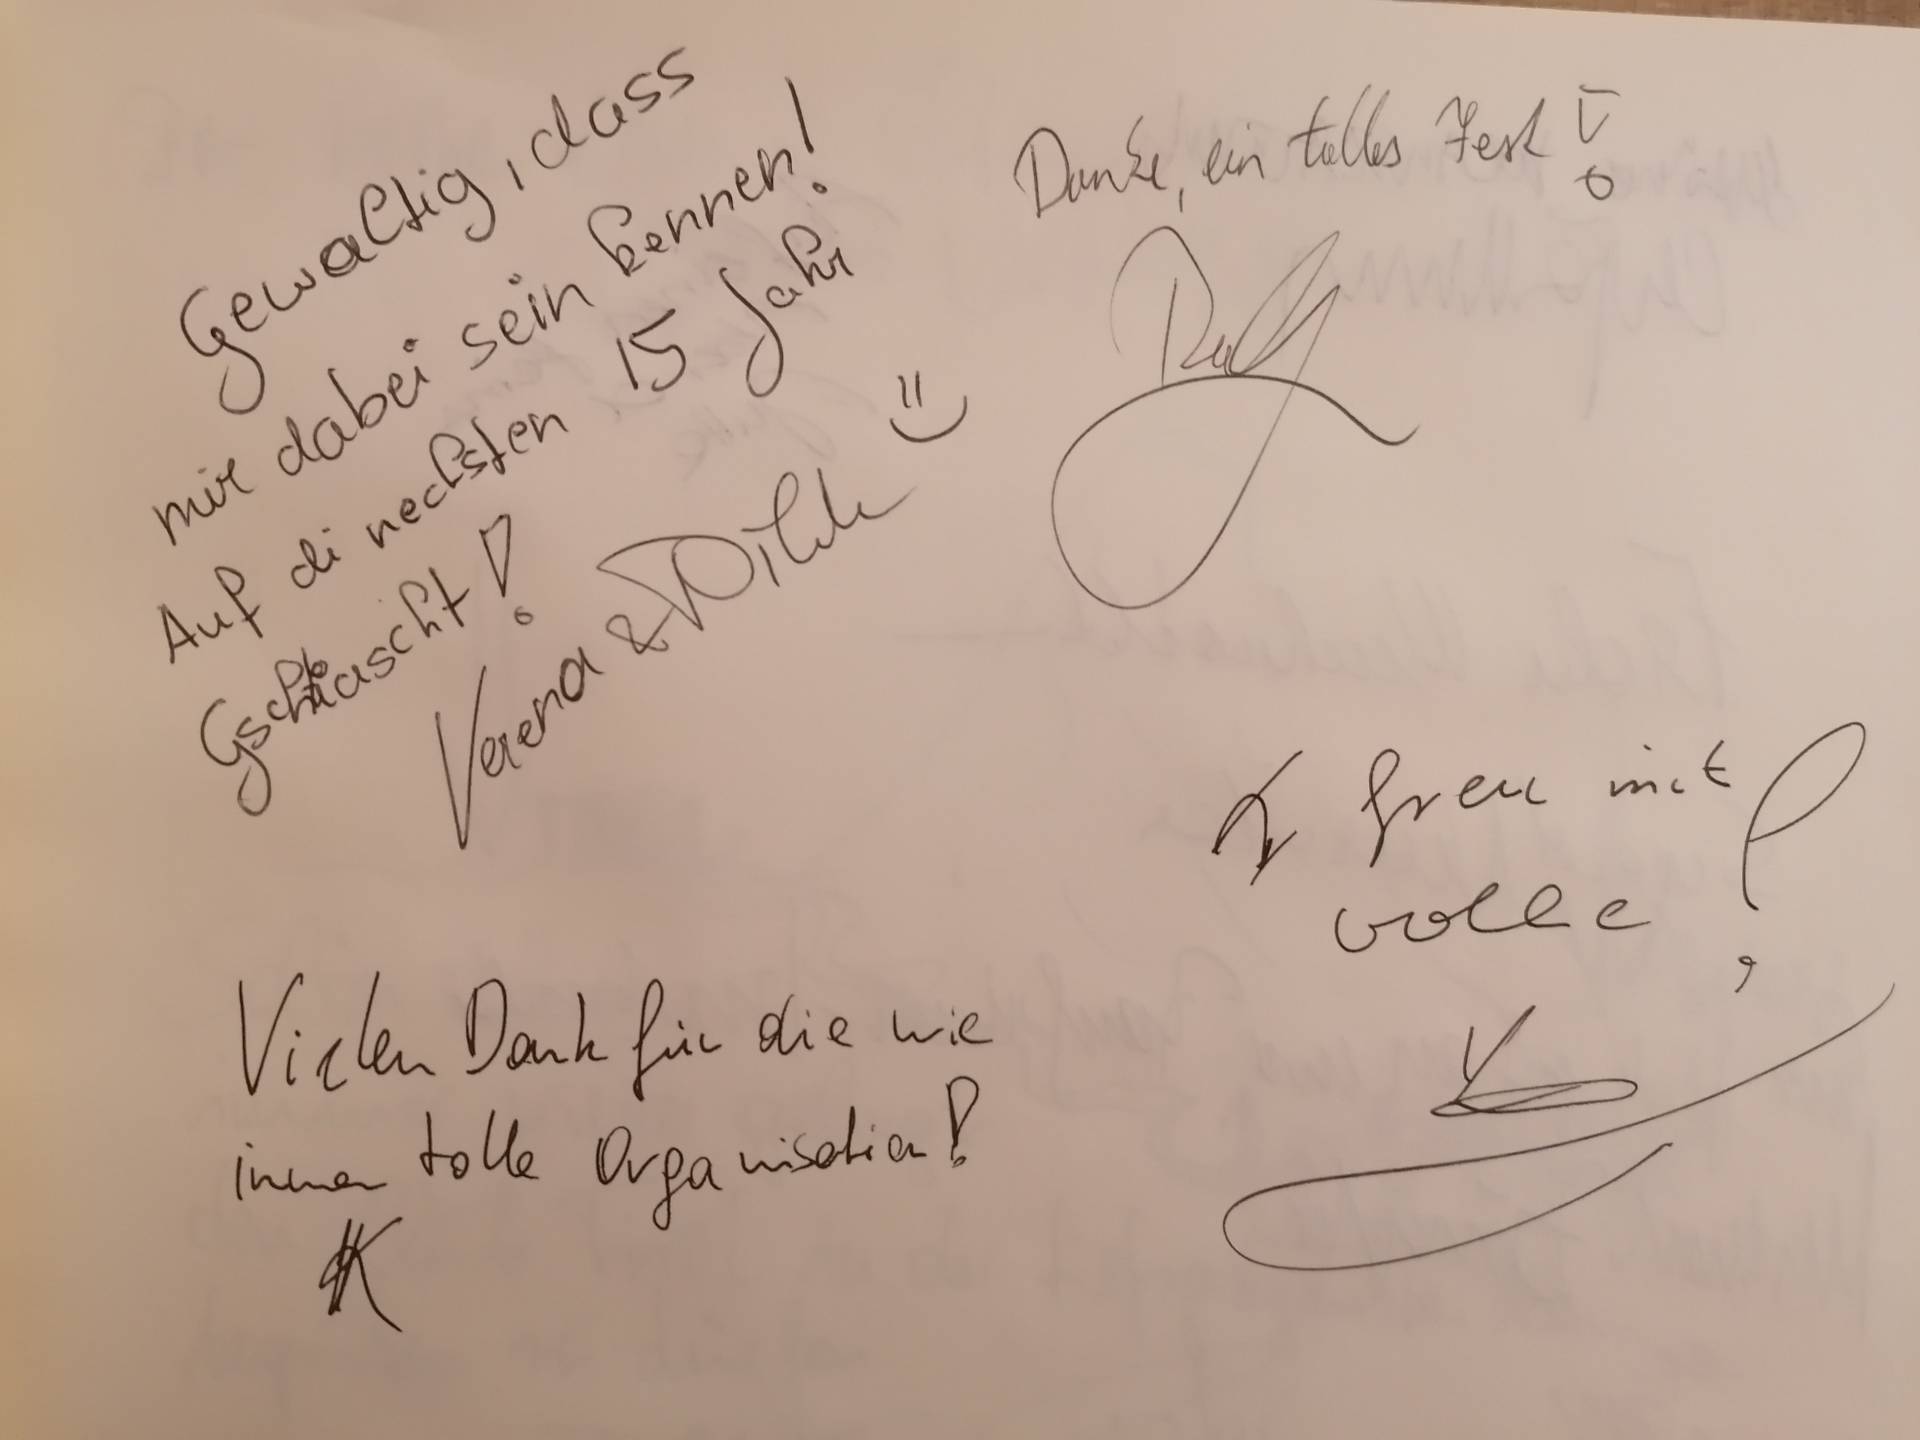 Gewaltig, dass
mir dabei sein kennen!
Auf di nechsten 15 Jahr
Gschtascht!
Verena &
Danke, ein tolles Fest!
freu mit
volle!
Vielen Dank für die wie
immer tolle Organisation!
K